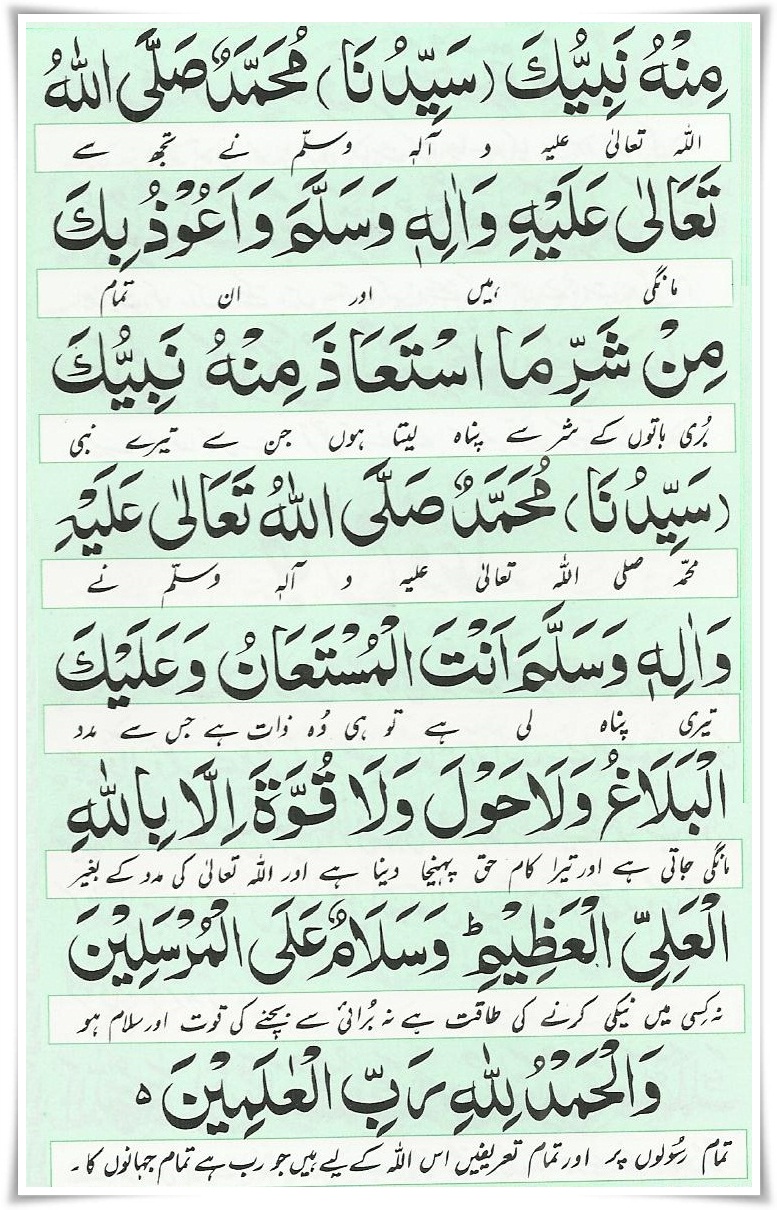 مِنْهُ نَبِيُّكَ (سَيِّدُنَا) مُحَمَّدٌ صَلَّى اللّٰهُ
اللہ تعالیٰ علیہ و آلہٖ وسلّم نے تجھ سے
تَعَالٰى عَلَيْهِ وَاٰلِهٖ وَسَلَّمَ وَاَعُوْذُ بِكَ
مانگی ہیں اور ان تمام
مِنْ شَرِّ مَا اسْتَعَاذَ مِنْهُ نَبِيُّكَ
بُری باتوں کے شر سے پناہ لیتا ہوں جن سے تیرے نبی
(سَيِّدُنَا) مُحَمَّدٌ صَلَّى اللّٰهُ تَعَالٰى عَلَيْهِ
محمّد صلی اللہ تعالیٰ علیہ و آلہٖ وسلّم نے
وَاٰلِهٖ وَسَلَّمَ اَنْتَ الْمُسْتَعَانُ وَعَلَيْكَ
تیری پناہ لی ہے تو ہی وُہ ذات ہے جس سے مدد
الْبَلَاغُ وَلَا حَوْلَ وَلَا قُوَّةَ اِلَّا بِاللّٰهِ
مانگی جاتی ہے اور تیرا کام حق پہنچا دینا ہے اور اللہ تعالیٰ کی مدد کے بغیر
الْعَلِيِّ الْعَظِيْمِ ؕ وَسَلَامٌ عَلَى الْمُرْسَلِيْنَ
نہ کِسی میں نیکی کرنے کی طاقت ہے نہ بُرائی سے بچنے کی قوت اور سلام ہو
وَالْحَمْدُ لِلّٰهِ رَبِّ الْعٰلَمِيْنَ ه
تمام رسُولوں پر اور تمام تعریفیں اس اللہ کے لیے ہیں جو رب ہے تمام جہانوں کا۔